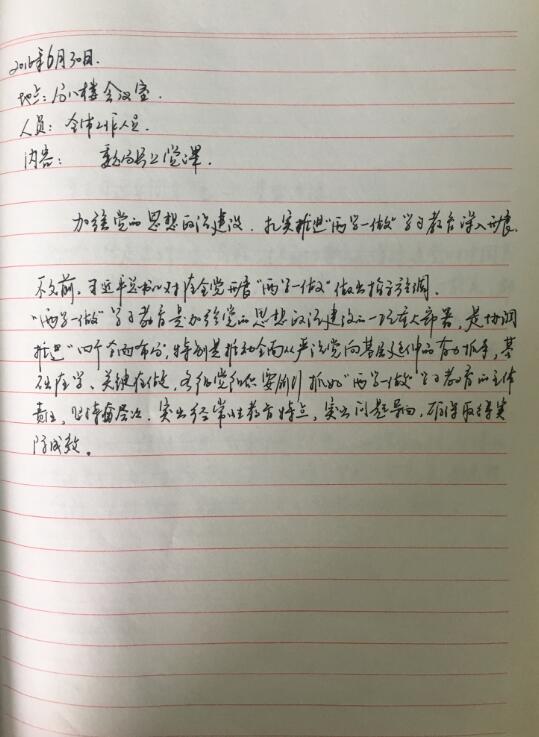 2016年6月30日.
地点:局八楼会议室.
人员: 全体工作人员.
内容: 局上党课.
加强党的思想政治建设.扎实推进"两学一做"学习教育深入开展.
不久前,习近平总书记对在全党开展"两学一做"做出指示强调,
"两学一做"学习教育是加强党的思想政治建设的一项重大部署,是协调
推进"四个全面布局",特别是推动全面从严治党向基层延伸的有力抓手,基
础在学、关键在做,各级党组织要履行抓好"两学一做"学习教育的主体
责任,层次.突出经常性教育特点,突出问题导向,确保取得实
际成效。